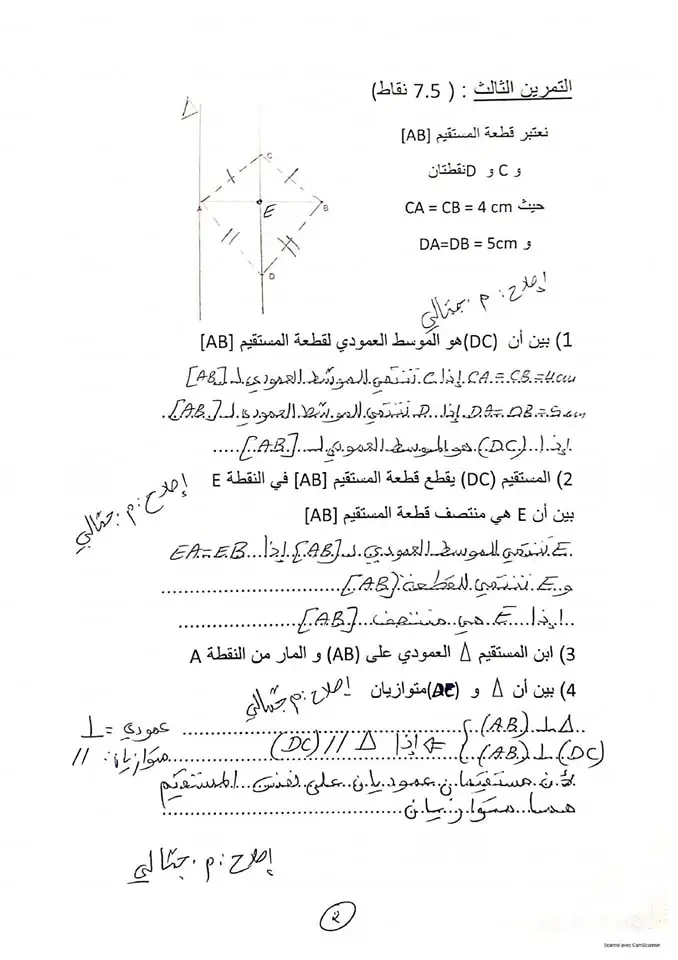 التمرين الثالث : ( 7.5 نقاط)
نعتبر قطعة المستقيم [AB]
و C و D نقطتان
حيث CA = CB = 4 cm
و DA=DB = 5cm
Δ
C
A
B
E
D
إصلاح: م. جثالي
1) بين أن (DC) هو الموسط العمودي لقطعة المستقيم [AB]
CA = CB = 4cm إذا C تنتمي الموسط العمودي لـ [AB]
DA = DB = 5cm إذا D تنتمي الموسط العمودي لـ [AB].
إذا (DC) هو الموسط العمودي لـ [AB].....
2) المستقيم (DC) يقطع قطعة المستقيم [AB] في النقطة E
إصلاح: م. جثالي
بين أن E هي منتصف قطعة المستقيم [AB]
E تنتمي للموسط العمودي لـ [AB] إذا EA = EB
و E تنتمي للقطعة [AB]..............
إذا E هي منتصف [AB]..............
3) ابن المستقيم Δ العمودي على (AB) و المار من النقطة A
4) بين أن Δ و (DC) متوازيان
إصلاح: م. جثالي
(AB) ⊥ Δ .............. عمودي = ⊥
(AB) ⊥ (DC) ⇐ إذا Δ // (DC) متوازيان: //
لأن مستقيمان عموديان على نفس المستقيم
هما متوازيان..............
إصلاح: م. جثالي
2
Scanné avec CamScanner